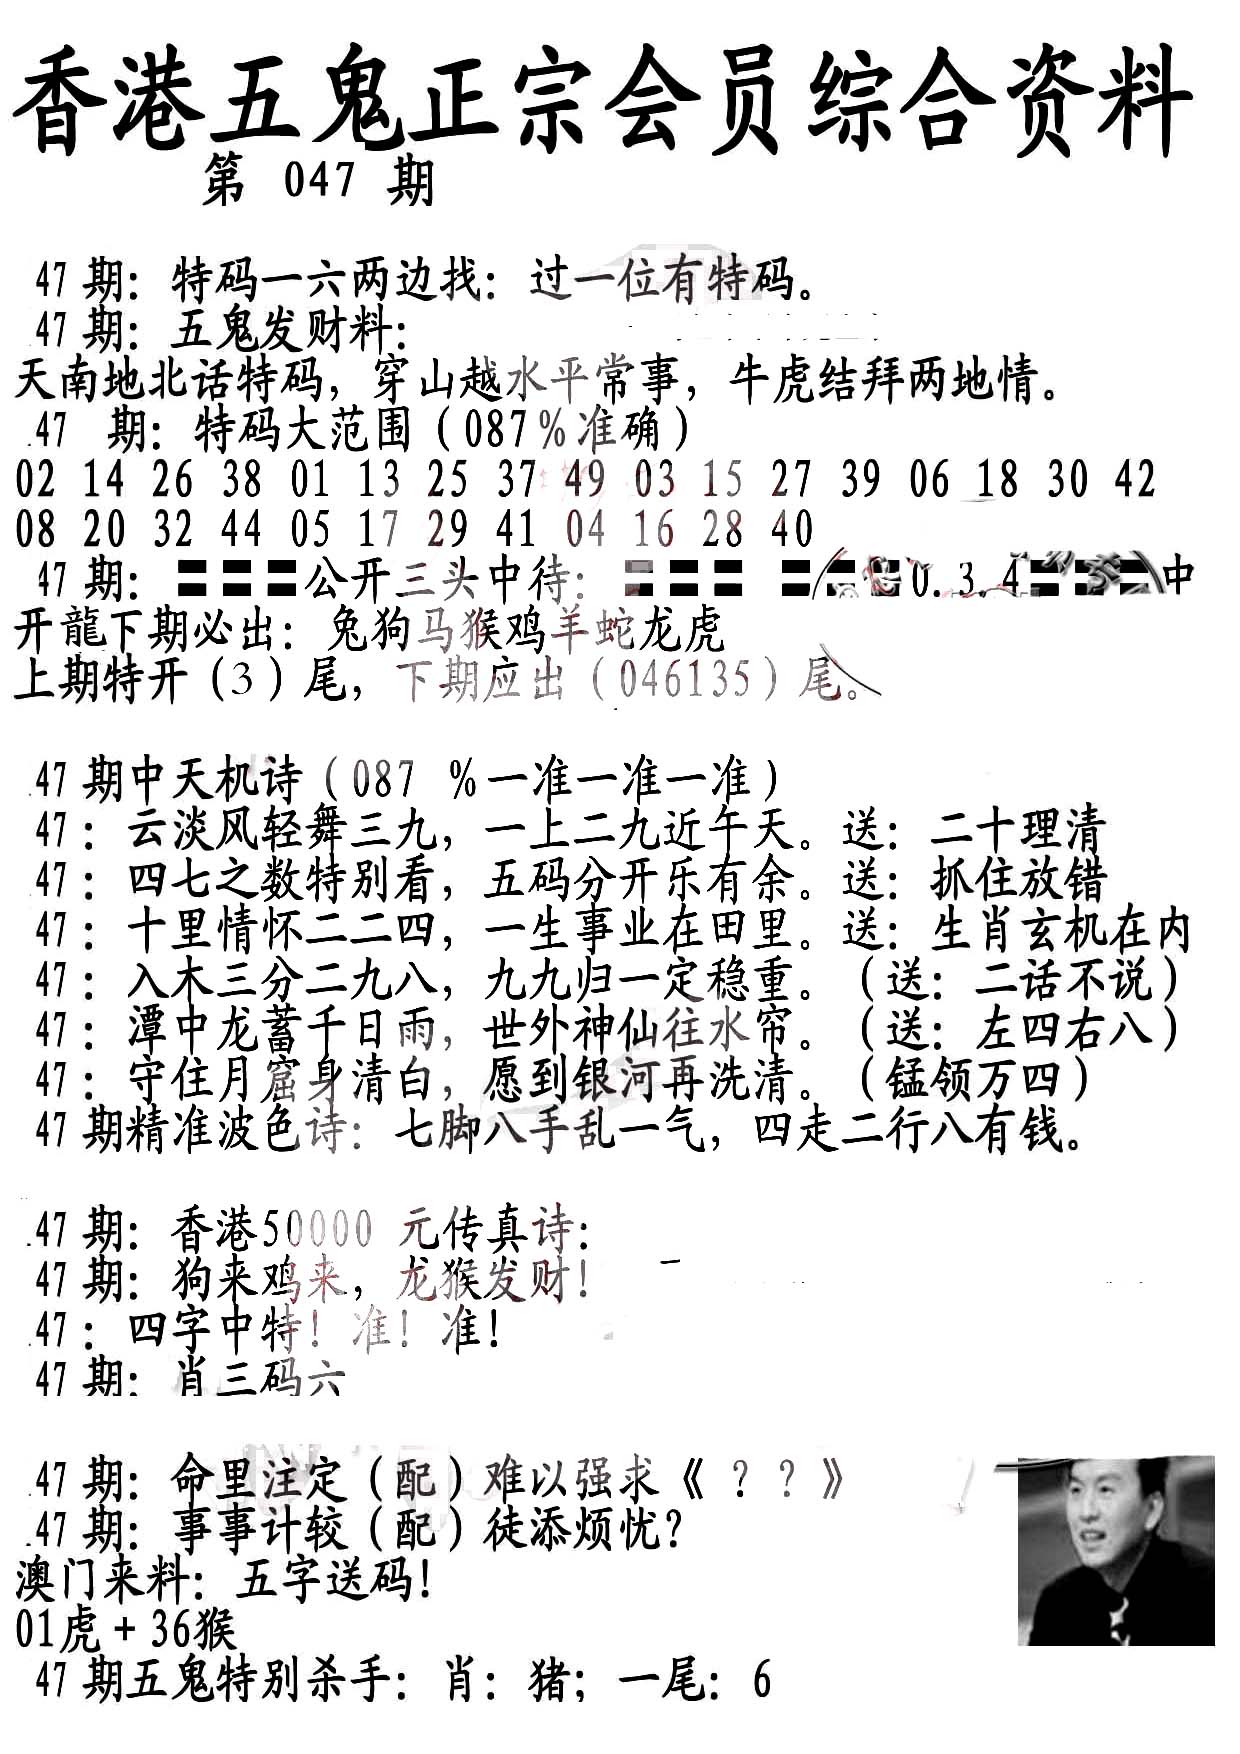 香港五鬼正宗会员综合资料
第 047 期
47 期：特码一六两边找：过一位有特码。
47 期：五鬼发财料：
天南地北话特码，穿山越水平常事，牛虎结拜两地情。
47 期：特码大范围（087%准确）
02 14 26 38 01 13 25 37 49 03 15 27 39 06 18 30 42
08 20 32 44 05 17 29 41 04 16 28 40
47 期：〓〓〓公开三头中待：〓〓〓 〓〓〓0.3.4〓〓〓中
开龍下期必出：兔狗马猴鸡羊蛇龙虎
上期特开（3）尾，下期应出（046135）尾。
47 期中天机诗（087 %一准一准一准）
47：云淡风轻舞三九，一上二九近午天。送：二十理清
47：四七之数特别看，五码分开乐有余。送：抓住放错
47：十里情怀二二四，一生事业在田里。送：生肖玄机在内
47：入木三分二九八，九九归一定稳重。（送：二话不说）
47：潭中龙蓄千日雨，世外神仙往水帘。（送：左四右八）
47：守住月窟身清白，愿到银河再洗清。（锰领万四）
47 期精准波色诗：七脚八手乱一气，四走二行八有钱。
47 期：香港50000 元传真诗：
47 期：狗来鸡来，龙猴发财！
47：四字中特！准！准！
47 期：肖三码六
47 期：命里注定（配）难以强求《？？》
47 期：事事计较（配）徒添烦忧？
澳门来料：五字送码！
01虎+36猴
47 期五鬼特别杀手：肖：猪；一尾：6